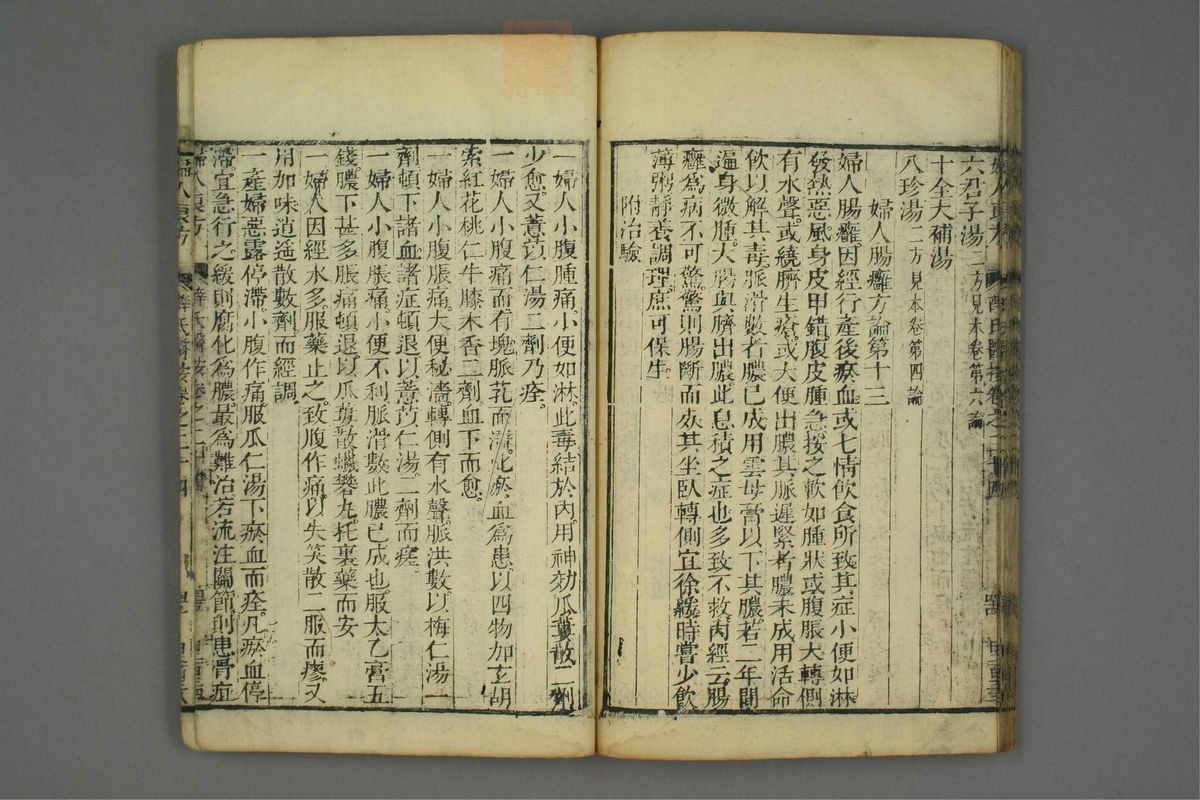 六君子湯二方見本卷第六論
十全大補湯
八珍湯二方見本卷第四論
婦人腸癰方論第十三
婦人腸癰因經行產後瘀血或七情飲食所致其症小便如淋
發熱惡風身皮甲錯腹皮腫急按之軟如腫狀或腹脹大轉側
有水聲或繞臍生瘡或大便出膿其脈遲緊者膿未成用活命
飲以解其毒脈滑數者膿已成用雲母膏以下其膿若二年間
遍身微腫大腸與臍出膿此息積之症也多致不救內經云腸
癰為病不可驚驚則腸斷而死其坐臥轉側宜徐緩時嘗少飲
薄粥靜養調理庶可保生
附治驗
一婦人小腹腫痛小便如淋此毒結於內用神効瓜蔞散二劑
少愈又薏苡仁湯二劑乃痊
一婦人小腹痛而有塊脈芤而濇此瘀血為患以四物加玄胡
索紅花桃仁牛膝木香二劑血下而愈
一婦人小腹脹痛大便秘澁轉側有水聲脈洪數以梅仁湯一
劑頓下諸血諸症頓退以薏苡仁湯二劑而瘥
一婦人小腹脹痛小便不利脈滑數此膿已成也服太乙膏五
錢膿下甚多脹痛頓退以瓜蔞散蠟礬丸托裏藥而安
一婦人因經水多服藥止之致腹作痛以失笑散二服而瘳又
用加味逍遙散數劑而經調
一產婦惡露停滯小腹作痛服瓜仁湯下瘀血而痊凡瘀血停
滯宜急行之緩則腐化為膿最為難治若流注關節則患骨疽
婦人良方 薛氏醫按卷之二十四